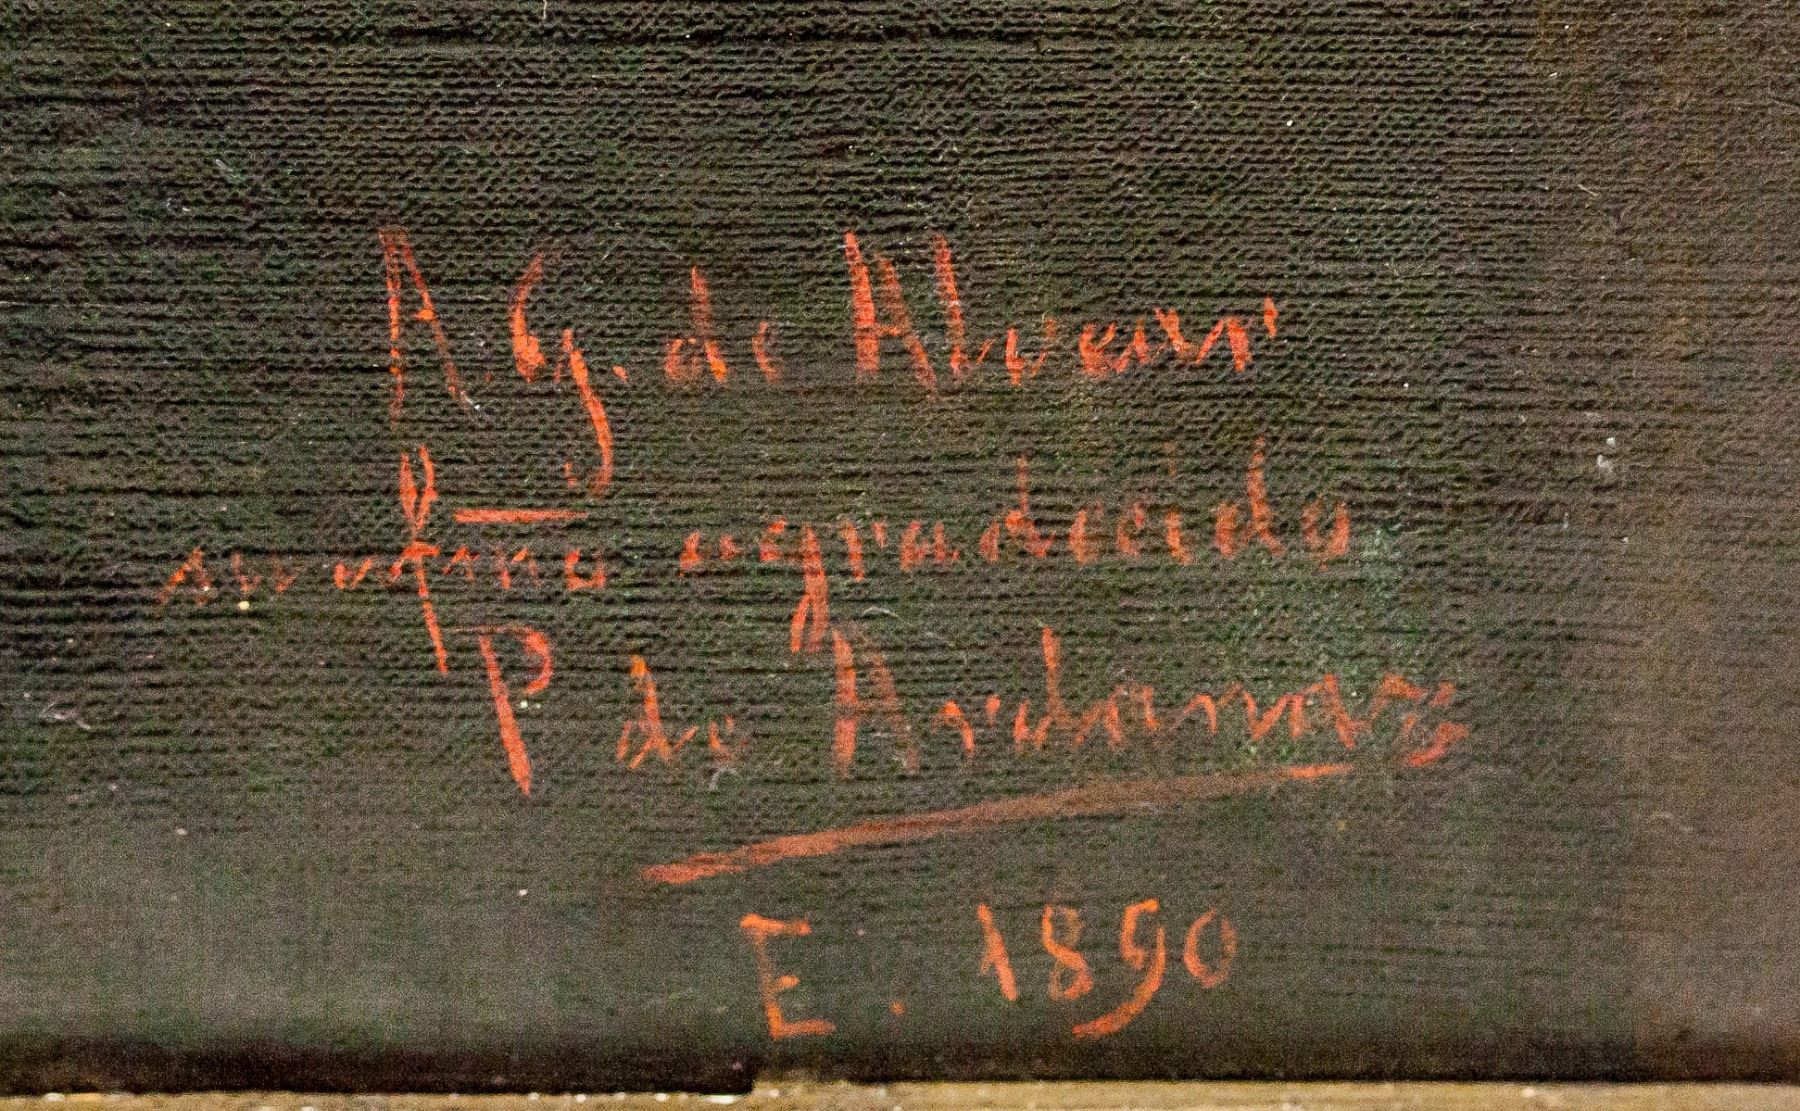 A G. de Alvear
su afmo agradecido
P de Archanas
E. 1890